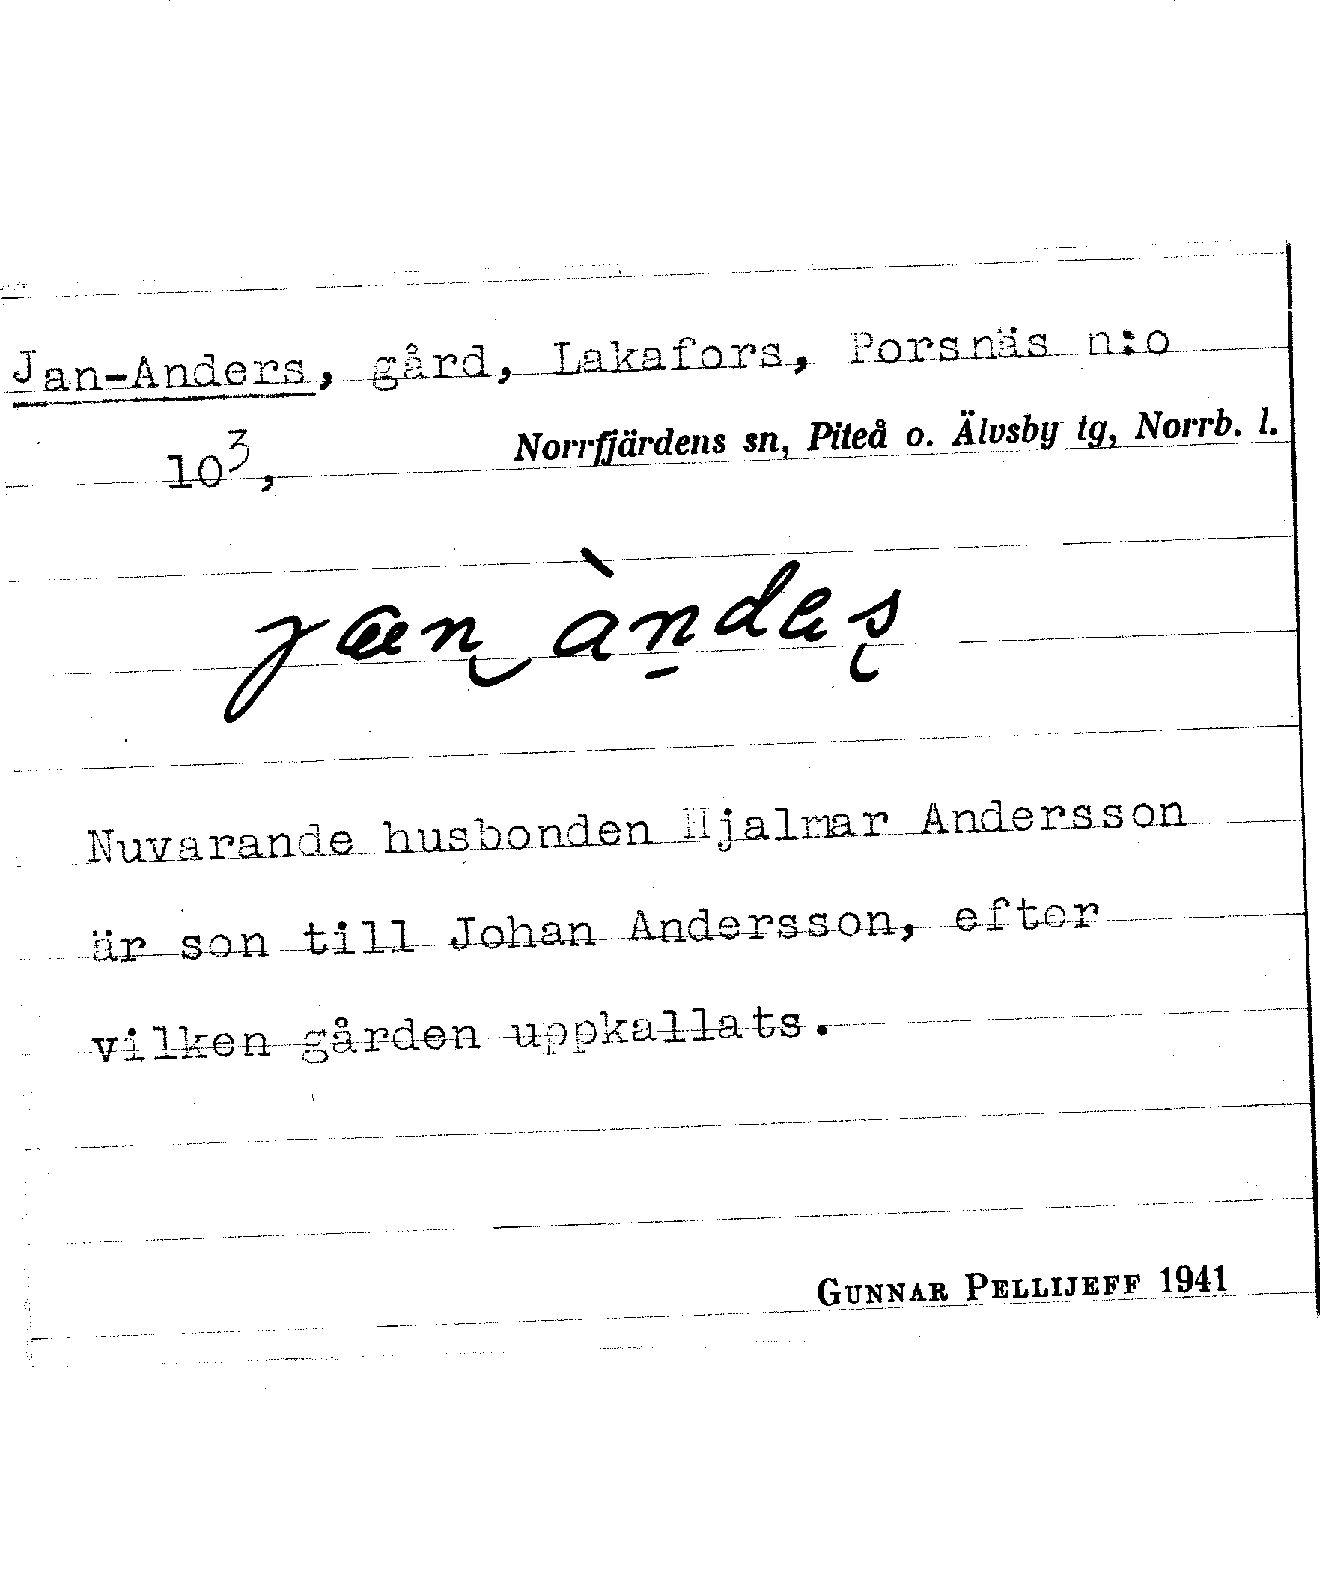 Jan-Anders, gård, Lakafors, Porsnäs n:o
10³, Norrfjärdens sn, Piteå o. Älvsby tg, Norrb. l.
Nuvarande husbonden Hjalmar Andersson
är son till Johan Andersson, efter
vilken gården uppkallats.
GUNNAR PELLIJEFF 1941